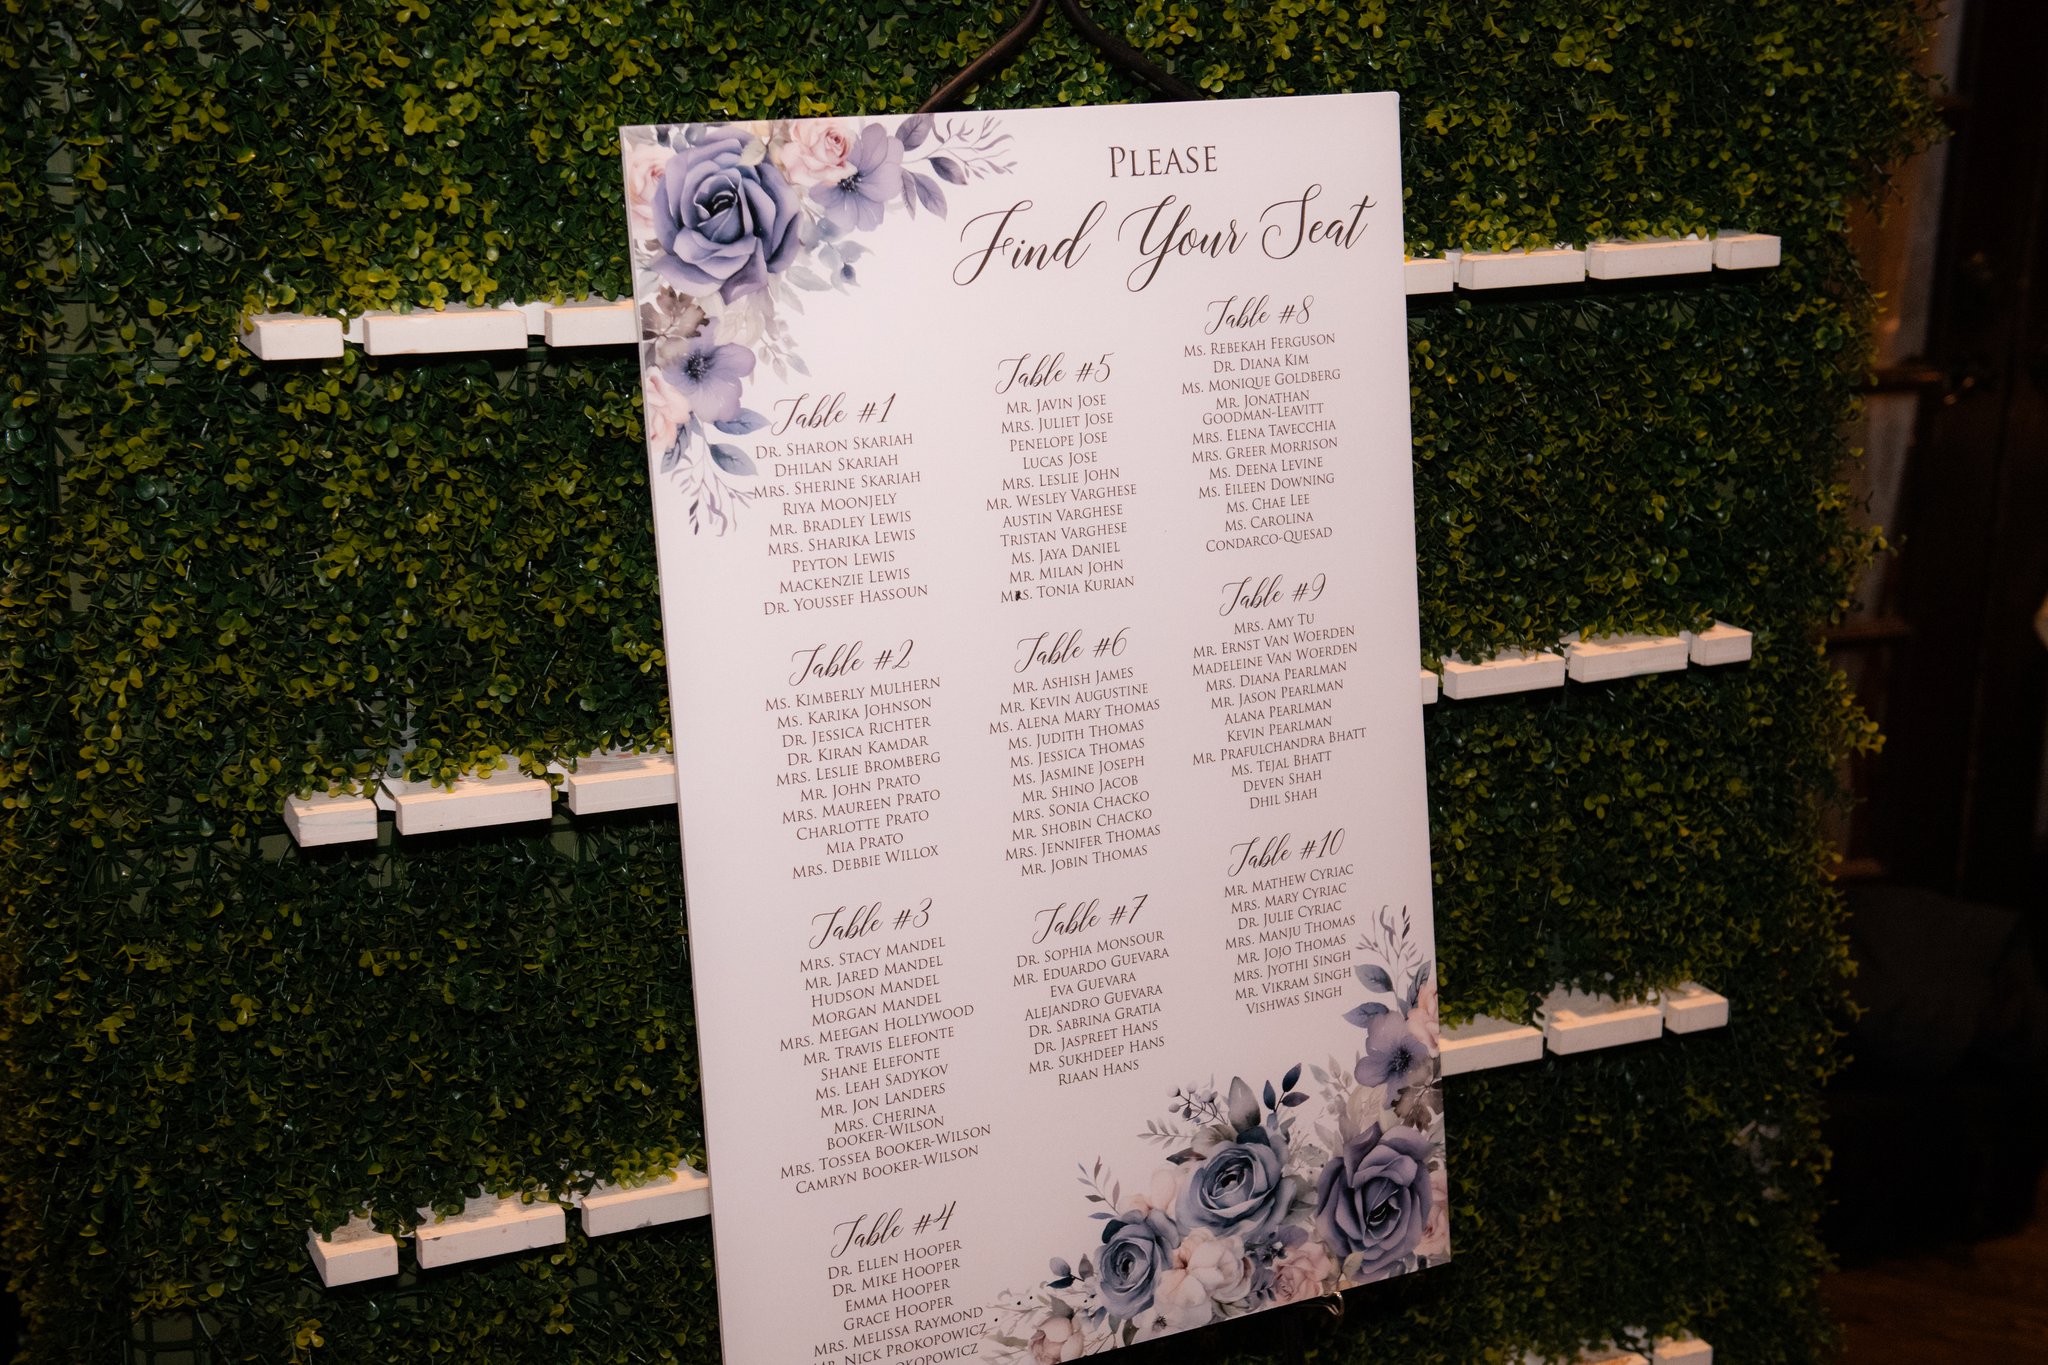 Please
Find Your Seat
Table #1
Dr. Sharon Skariah
Dhilan Skariah
Mrs. Sherine Skariah
Riya Moonjely
Mr. Bradley Lewis
Mrs. Sharika Lewis
Peyton Lewis
Mackenzie Lewis
Dr. Youssef Hassoun
Table #2
Ms. Kimberly Mulhern
Ms. Karika Johnson
Dr. Jessica Richter
Dr. Kiran Kamdar
Mrs. Leslie Bromberg
Mr. John Prato
Mrs. Maureen Prato
Charlotte Prato
Mia Prato
Mrs. Debbie Willox
Table #3
Mrs. Stacy Mandel
Mr. Jared Mandel
Hudson Mandel
Morgan Mandel
Mrs. Meegan Hollywood
Mr. Travis Elefonte
Shane Elefonte
Ms. Leah Sadykov
Mr. Jon Landers
Mrs. Cherina
Booker-Wilson
Mrs. Tossea Booker-Wilson
Camryn Booker-Wilson
Table #4
Dr. Ellen Hooper
Dr. Mike Hooper
Emma Hooper
Grace Hooper
Mrs. Melissa Raymond
Mr. Nick Prokopowicz
Table #5
Mr. Javin Jose
Mrs. Juliet Jose
Penelope Jose
Lucas Jose
Mrs. Leslie John
Mr. Wesley Varghese
Austin Varghese
Tristan Varghese
Ms. Jaya Daniel
Mr. Milan John
Mrs. Tonia Kurian
Table #6
Mr. Ashish James
Mr. Kevin Augustine
Ms. Alena Mary Thomas
Ms. Judith Thomas
Ms. Jessica Thomas
Ms. Jasmine Joseph
Mr. Shino Jacob
Mrs. Sonia Chacko
Mr. Shobin Chacko
Mrs. Jennifer Thomas
Mr. Jobin Thomas
Table #7
Dr. Sophia Monsour
Mr. Eduardo Guevara
Eva Guevara
Alejandro Guevara
Dr. Sabrina Gratia
Dr. Jaspreet Hans
Mr. Sukhdeep Hans
Riaan Hans
Table #8
Ms. Rebekah Ferguson
Dr. Diana Kim
Ms. Monique Goldberg
Mr. Jonathan
Goodman-Leavitt
Mrs. Elena Tavecchia
Mrs. Greer Morrison
Ms. Deena Levine
Ms. Eileen Downing
Ms. Chae Lee
Ms. Carolina
Condarco-Quesad
Table #9
Mrs. Amy Tu
Mr. Ernst Van Woerden
Madeleine Van Woerden
Mrs. Diana Pearlman
Mr. Jason Pearlman
Alana Pearlman
Kevin Pearlman
Mr. Prafulchandra Bhatt
Ms. Tejal Bhatt
Deven Shah
Dhil Shah
Table #10
Mr. Mathew Cyriac
Mrs. Mary Cyriac
Dr. Julie Cyriac
Mrs. Manju Thomas
Mr. Jojo Thomas
Mrs. Jyothi Singh
Mr. Vikram Singh
Vishwas Singh